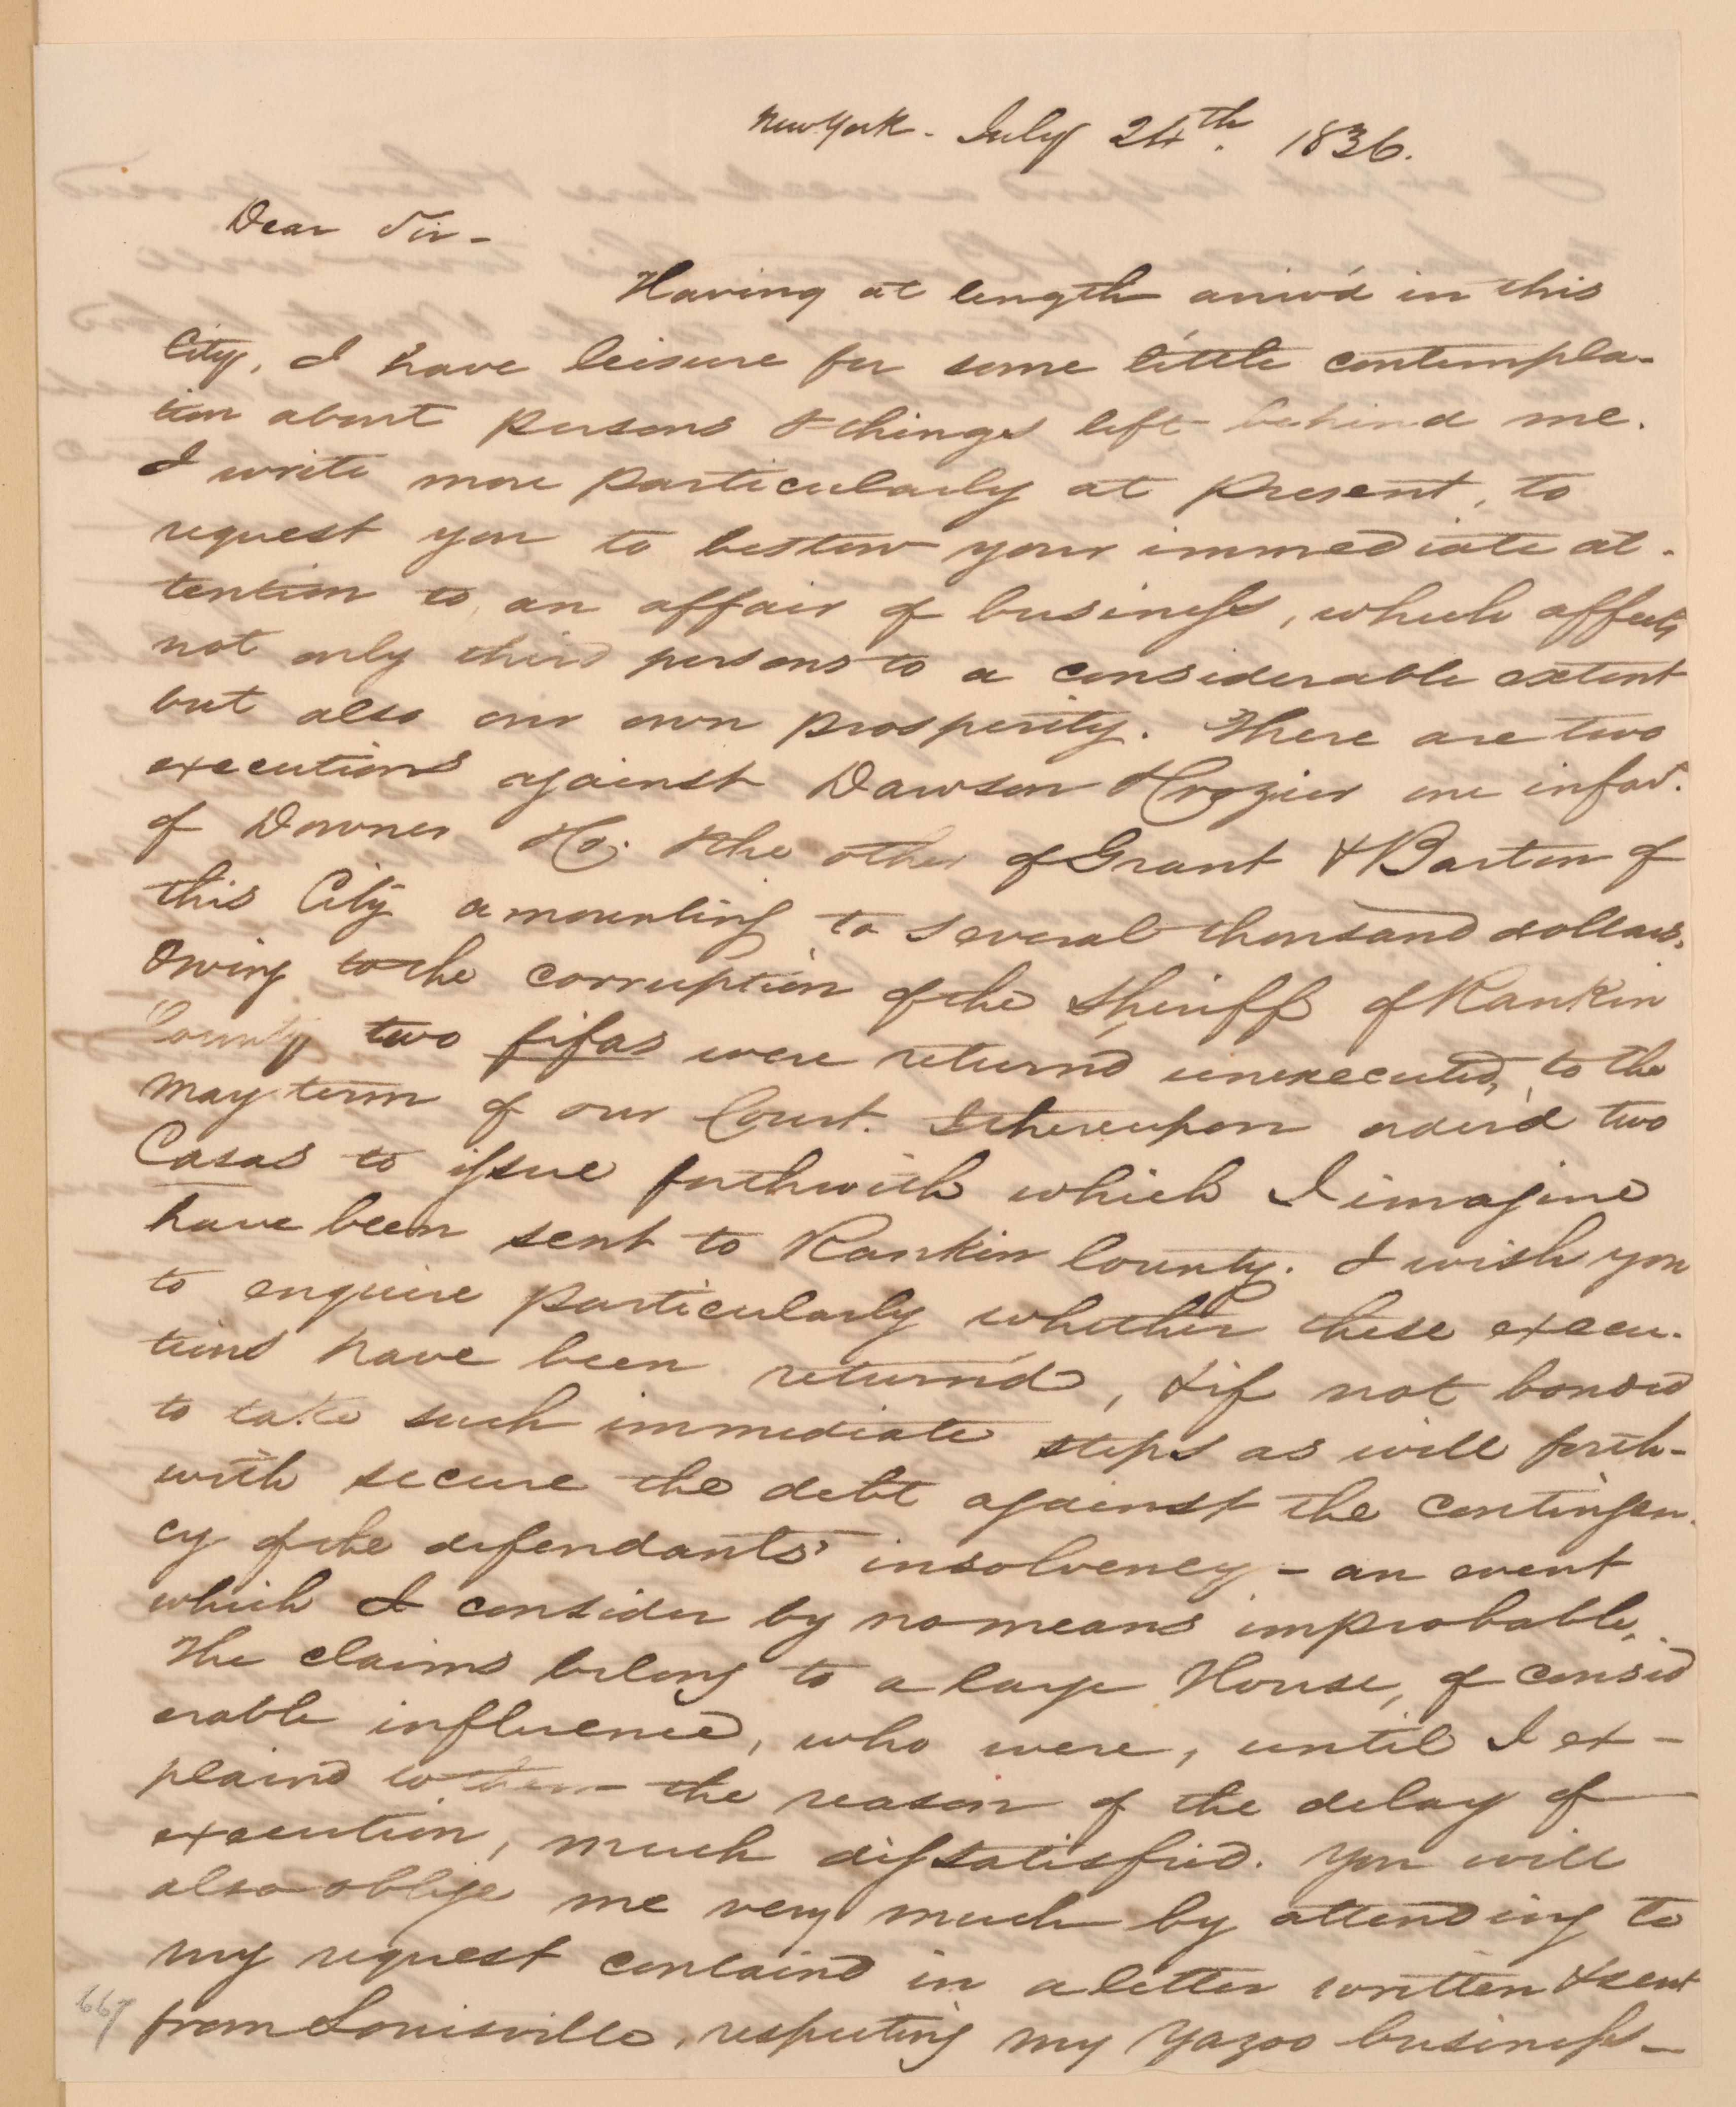 New York - July 24th. 1836.
Dear Sir -
Having at length arriv'd in this
City, I have leisure for some little contempla-
tion about persons & things left behind me.
I write more particularly at present, to
request you to bestow your immediate at-
tention to an affair of business, which affects
not only third persons to a considerable extent
but also our own prosperity. There are two
executions against Dawson & Crozier one in fav.
of Downer & Co. & the other of Grant & Barton of
this City amounting to several thousand dollars.
Owing to the corruption of the Sheriff of Rankin
County two fifas were returnd unexecuted, to the
May term of our Court. I thereupon order'd two
Casas to issue forthwith which I imagine
have been sent to Rankin County. I wish you
to enquire particularly whether these execu-
tions have been return'd, & if not bonded
to take such immediate steps as will forth-
with secure the debt against the contingen-
cy of the defendants' insolvency - an event
which I consider by no means improbable.
The claims belong to a large House, of consid
erable influence, who were, until I ex-
plaind to them the reason of the delay of
execution, much dissatisfied. You will
also oblige me very much by attending to
my request containd in a letter written & sent
from Louisville, respecting my Yazoo business -
667